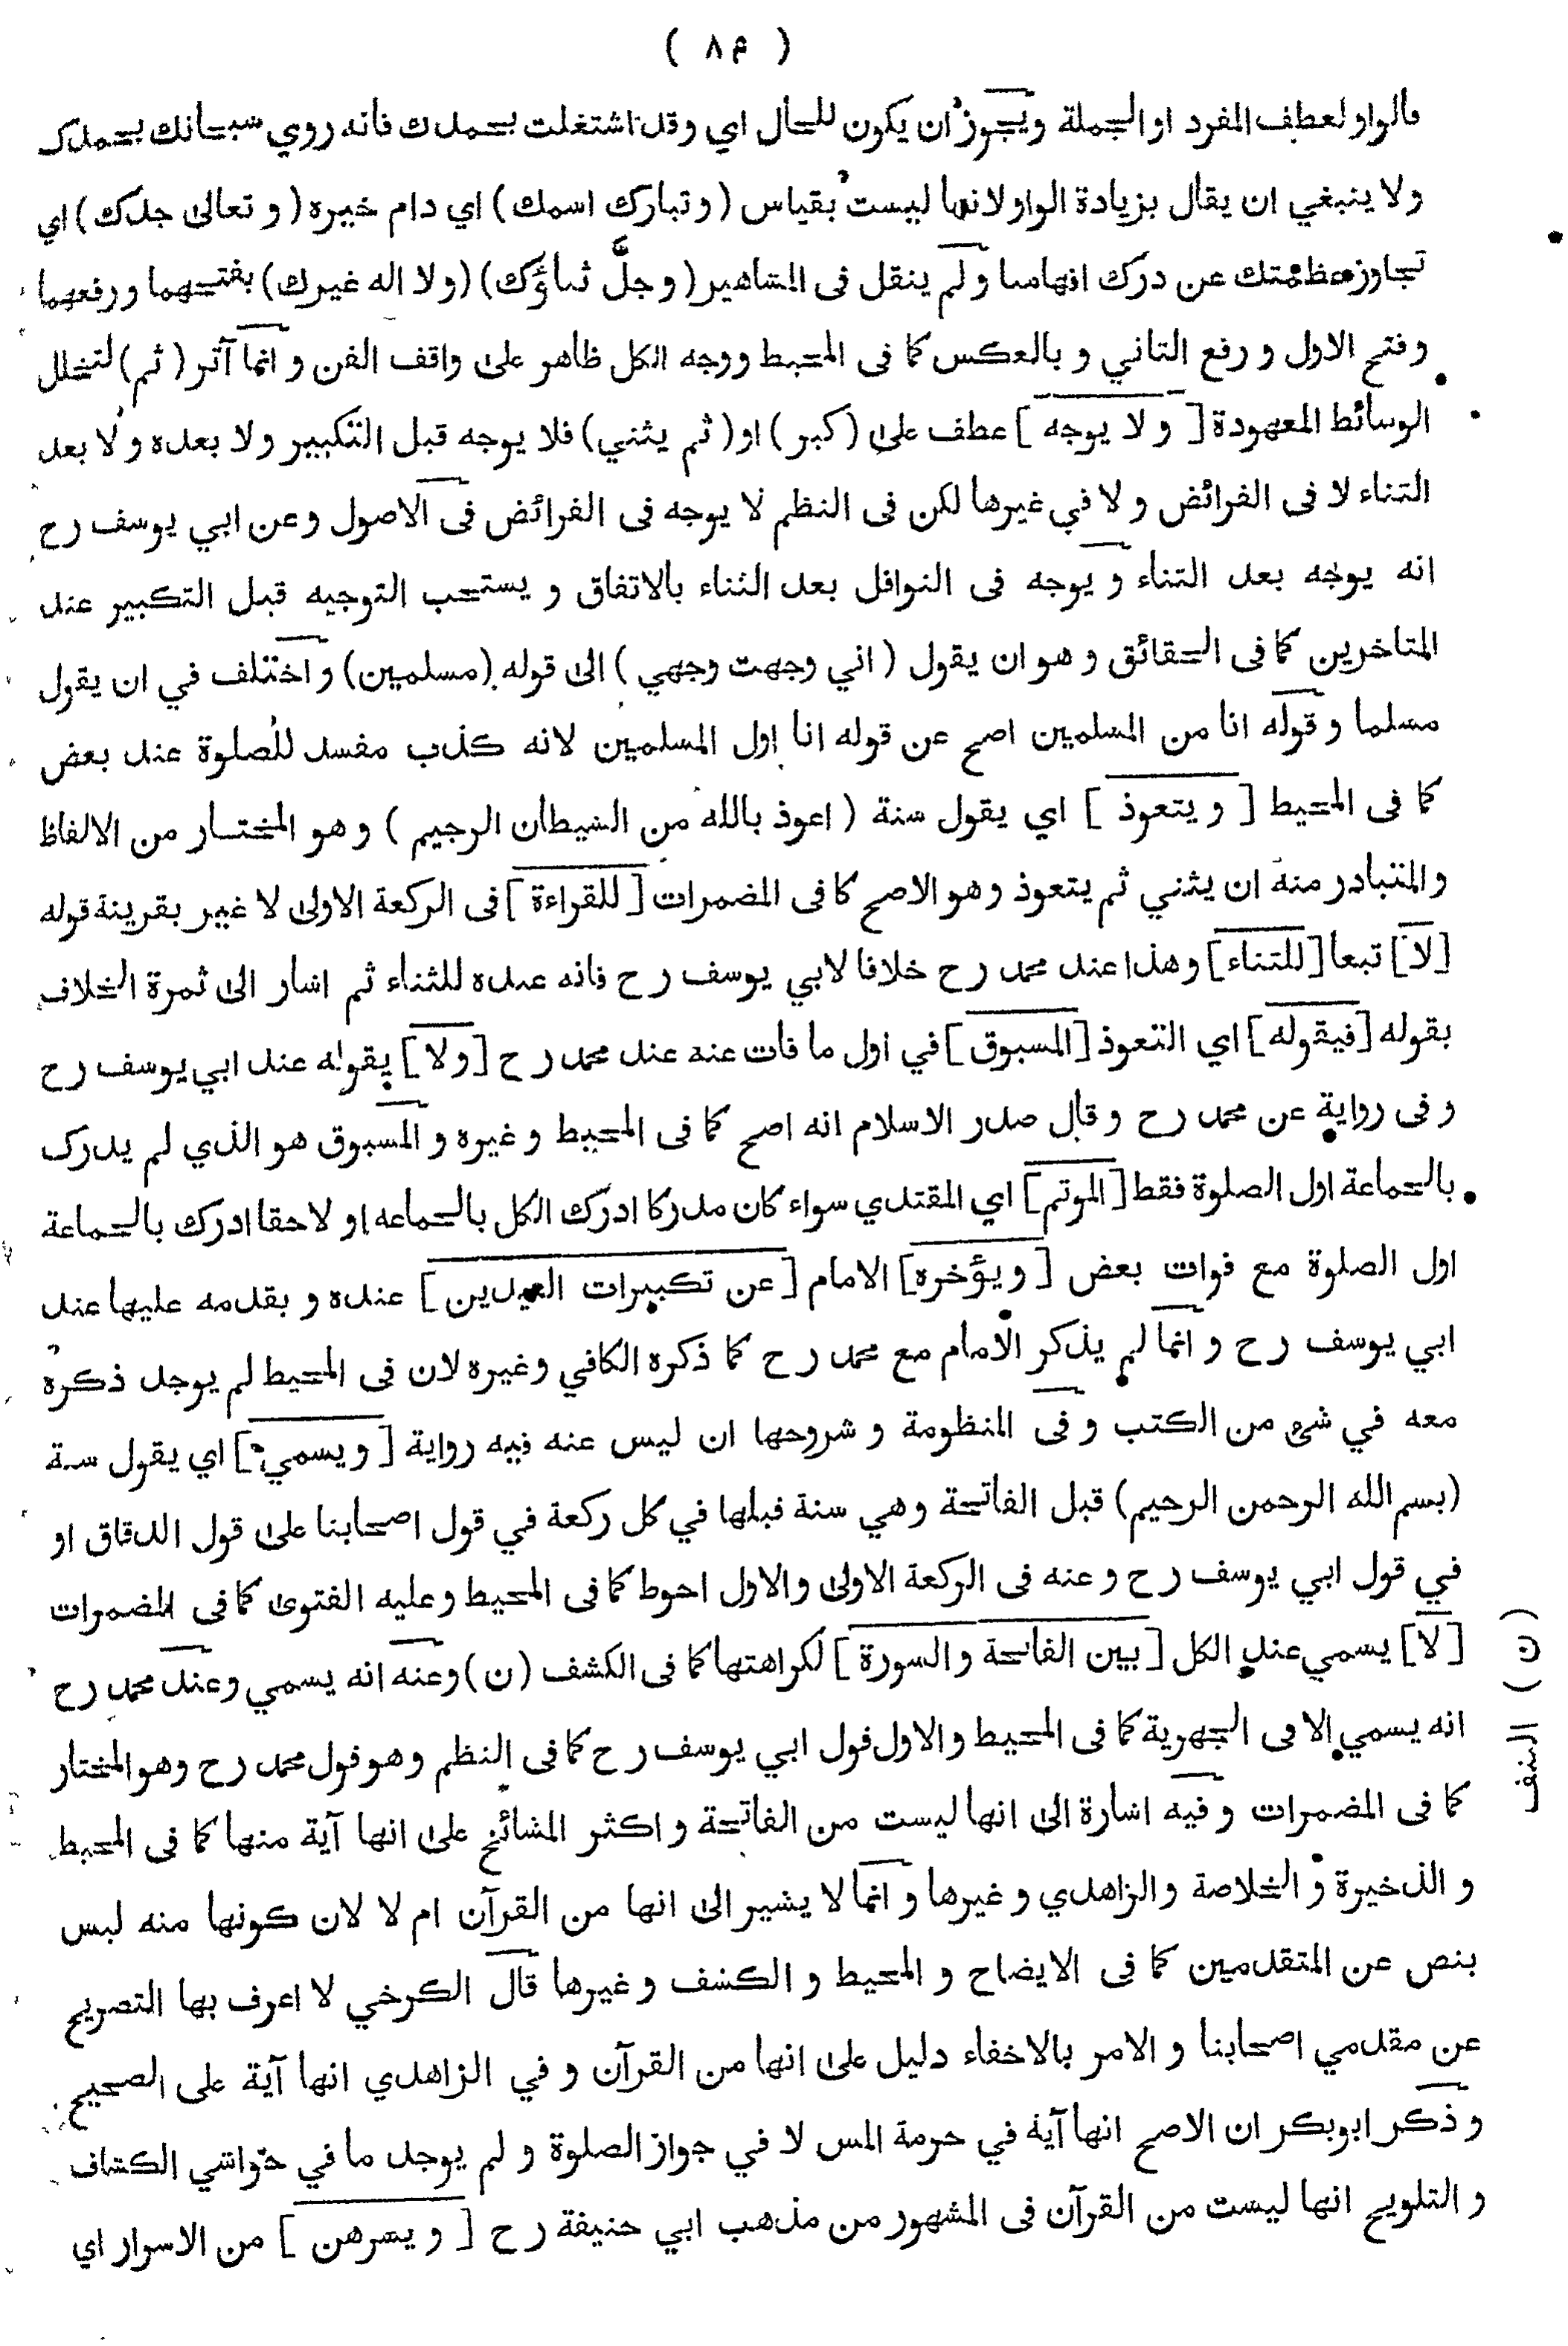 ( ٨۴ )
فالواو لعطف المفرد او الجملة ويجوز ان يكون للحال اي وقد اشتغلت بحمدك فانه روي سبحانك بحمدك
ولا ينبغي ان يقال بزيادة الواو لانها ليست بقياس ( و تبارك اسمك ) اي دام خيره ( و تعالى جدك ) اي
تجاوز عظمتك عن درك افهامنا و لم ينقل فى المشاهير ( و جلَّ ثناؤك ) ( ولا اله غيرك ) بفتحهما و رفعهما
و فتح الاول و رفع الثاني و بالعكس كما فى المحيط ووجه الكل ظاهر على واقف الفن و انما آثر ( ثم ) لتخلل
الوسائط المعهودة [ و لا يوجه ] عطف على ( كبر ) او ( ثم يثني ) فلا يوجه قبل التكبير ولا بعده و لا بعد
الثناء لا فى الفرائض و لا في غيرها لكن فى النظم لا يوجه فى الفرائض فى الاصول و عن ابي يوسف رح
انه يوجه بعد الثناء و يوجه فى النوافل بعد الثناء بالاتفاق و يستحب التوجيه قبل التكبير عند
المتاخرين كما فى الحقائق و هو ان يقول ( اني وجهت وجهي ) الى قوله (مسلمين) و اختلف في ان يقول
مسلما و قوله انا من المسلمين اصح عن قوله انا اول المسلمين لانه كذب مفسد للصلوة عند بعض
كما فى المحيط [ و يتعوذ ] اي يقول سنة ( اعوذ بالله من الشيطان الرجيم ) و هو المختار من الالفاظ
و المتبادر منه ان يثني ثم يتعوذ وهو الاصح كما فى المضمرات [ للقراءة ] فى الركعة الاولى لا غير بقرينة قوله
[ لا ] تبعا [ للثناء ] وهذا عند محمد رح خلافا لابي يوسف رح فانه عنده للثناء ثم اشار الى ثمرة الخلاف
بقوله [ فيقوله ] اي التعوذ [ المسبوق ] في اول ما فات عنه عند محمد رح [ ولا ] يقوله عند ابي يوسف رح
و فى رواية عن محمد رح و قال صدر الاسلام انه اصح كما فى المحيط و غيره و المسبوق هو الذي لم يدرك
بالجماعة اول الصلوة فقط [ الموتم ] اي المقتدي سواء كان مدركا ادرك الكل بالجماعه او لاحقا ادرك بالجماعة
اول الصلوة مع فوات بعض [ و يؤخره ] الامام [ عن تكبيرات العيدين ] عنده و يقدمه عليها عند
ابي يوسف رح و انما لم يذكر الامام مع محمد رح كما ذكره الكافي وغيره لان فى المحيط لم يوجد ذكره
معه في شئ من الكتب و فى المنظومة و شروحها ان ليس عنه فيه رواية [ و يسمي ] اي يقول سنة
(بسم الله الرحمن الرحيم) قبل الفاتحة وهي سنة قبلها في كل ركعة في قول اصحابنا على قول الدقاق او
في قول ابي يوسف رح و عنه فى الركعة الاولى والاول احوط كما فى المحيط و عليه الفتوى كما فى المضمرات
[ لا ] يسمي عند الكل [ بين الفاتحة و السورة ] لكراهتها كما فى الكشف (ن) وعنه انه يسمي وعند محمد رح
انه يسمي الا فى الجهرية كما فى المحيط و الاول قول ابي يوسف رح كما فى النظم وهو قول محمد رح وهو المختار
كما فى المضمرات و فيه اشارة الى انها ليست من الفاتحة و اكثر المشائخ على انها آية منها كما فى المحيط
و الذخيرة و الخلاصة و الزاهدي و غيرها و انما لا يشير الى انها من القرآن ام لا لان كونها منه ليس
بنص عن المتقدمين كما فى الايضاح و المحيط و الكشف و غيرها قال الكرخي لا اعرف بها التصريح
عن مقدمي اصحابنا و الامر بالاخفاء دليل على انها من القرآن و في الزاهدي انها آية على الصحيح
و ذكر ابوبكر ان الاصح انها آية في حرمة المس لا في جواز الصلوة و لم يوجد ما في حواشي الكشاف
و التلويح انها ليست من القرآن فى المشهور من مذهب ابي حنيفة رح [ و يسرهن ] من الاسرار اي
(ن) النتف